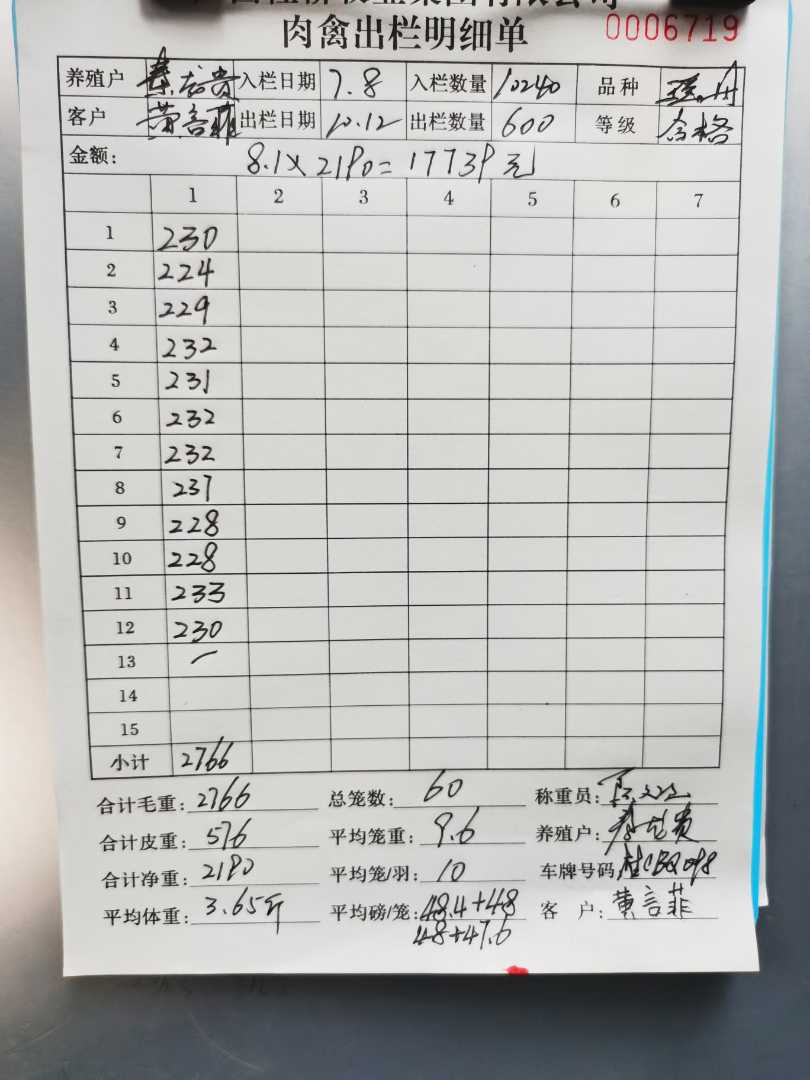 肉禽出栏明细单 0006719
养殖户 秦龙贵 入栏日期 7.8 入栏数量 10240 品种
客户 黄言菲 出栏日期 10.12 出栏数量 600 等级 合格
金额: 8.1×2190=17739元
1 2 3 4 5 6 7
1 230
2 224
3 229
4 232
5 231
6 232
7 232
8 237
9 228
10 228
11 233
12 230
13 一
14
15
小计 2766
合计毛重: 2766 总笼数: 60 称重员:
合计皮重: 576 平均笼重: 9.6 养殖户: 秦龙贵
合计净重: 2190 平均笼/羽: 10 车牌号码:
平均体重: 3.65斤 平均磅/笼: 48.4+48 客 户: 黄言菲
48+47.6